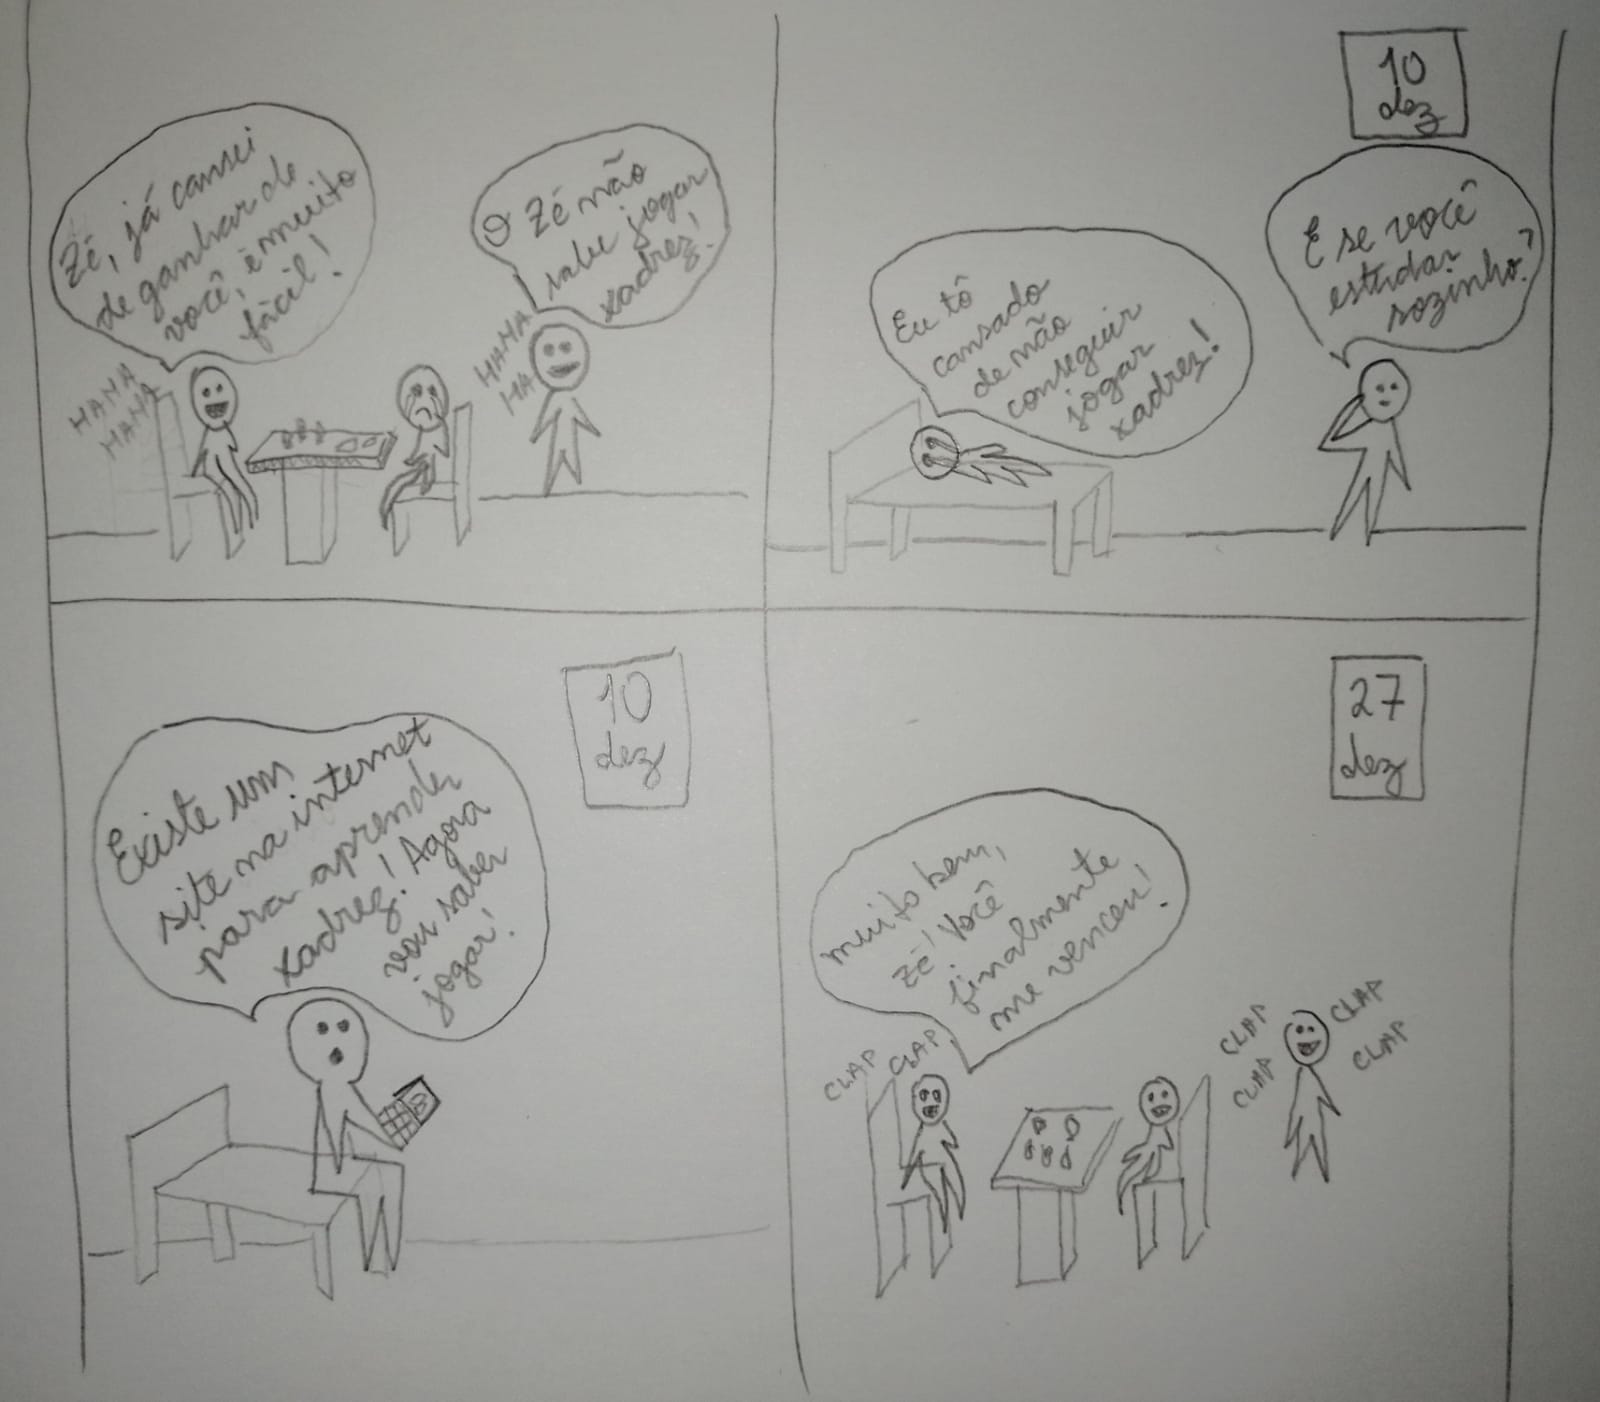 Zé, já cansei
de ganhar de
você, é muito
fácil!
HAHA
HAHA
O Zé não
sabe jogar
xadrez!
HAHA
HA
10
dez
Eu tô
cansado
de não
conseguir
jogar
xadrez!
E se você
estudar
sozinho?
10
dez
Existe um
site na internet
para aprender
xadrez! Agora
vou saber
jogar!
27
dez
muito bem,
Zé! Você
finalmente
me venceu!
CLAP
CLAP
CLAP
CLAP
CLAP
CLAP